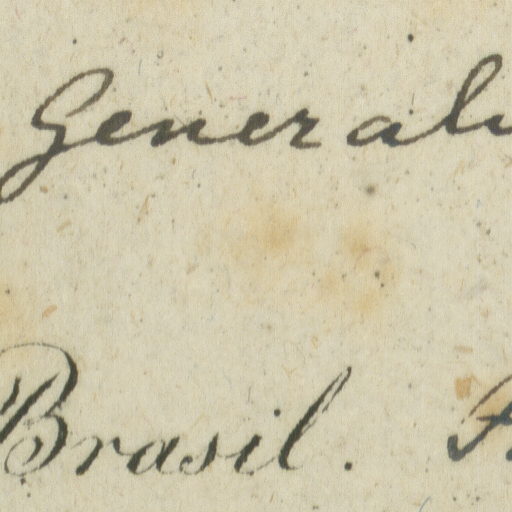 Generalu
Brasil.